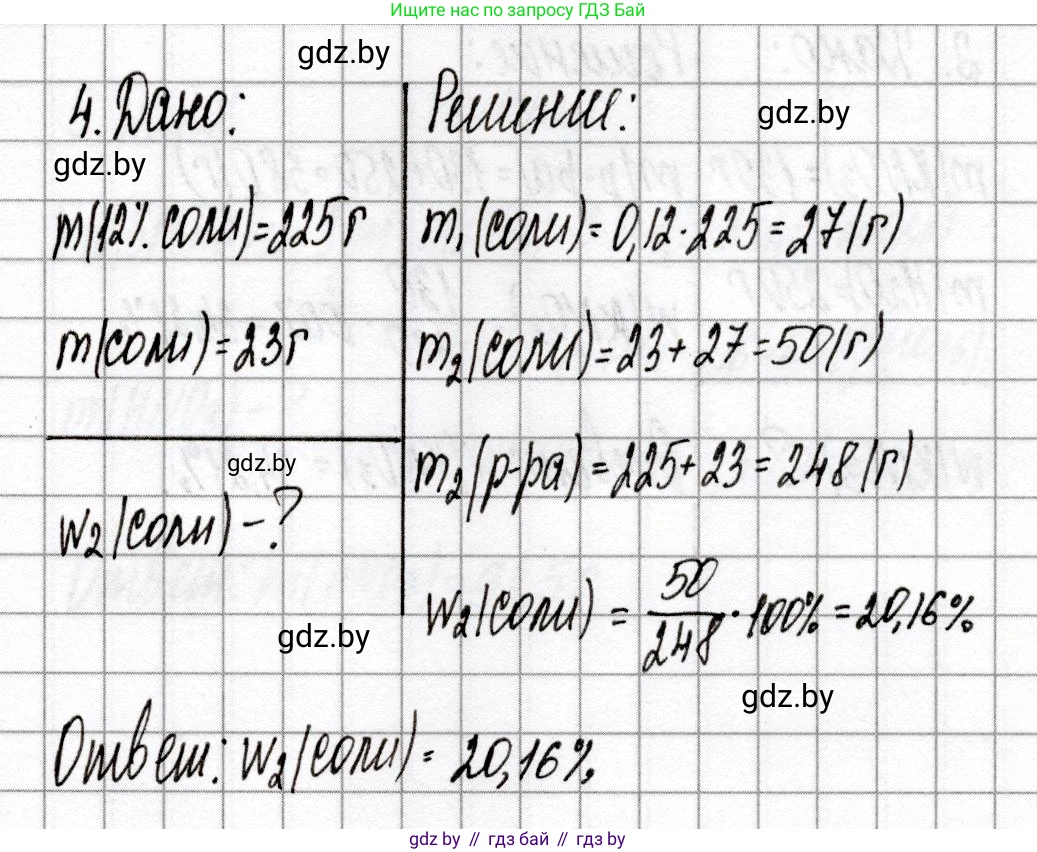 Ищите нас по запросу ГДЗ Бай
gdz.by
4. Дано:
Решение:
gdz.by
gdz.by
m(12% соли)=225г
m₁(соли)=0,12·225=27(г)
m(соли)=23г
m₂(соли)=23+27=50(г)
gdz.by
m₂(р-ра)=225+23=248(г)
w₂(соли)-?
w₂(соли) = 50/248 · 100% = 20,16%
gdz.by
gdz.by
Ответ: w₂(соли) = 20,16%
gdz.by // гдз бай // гдз by